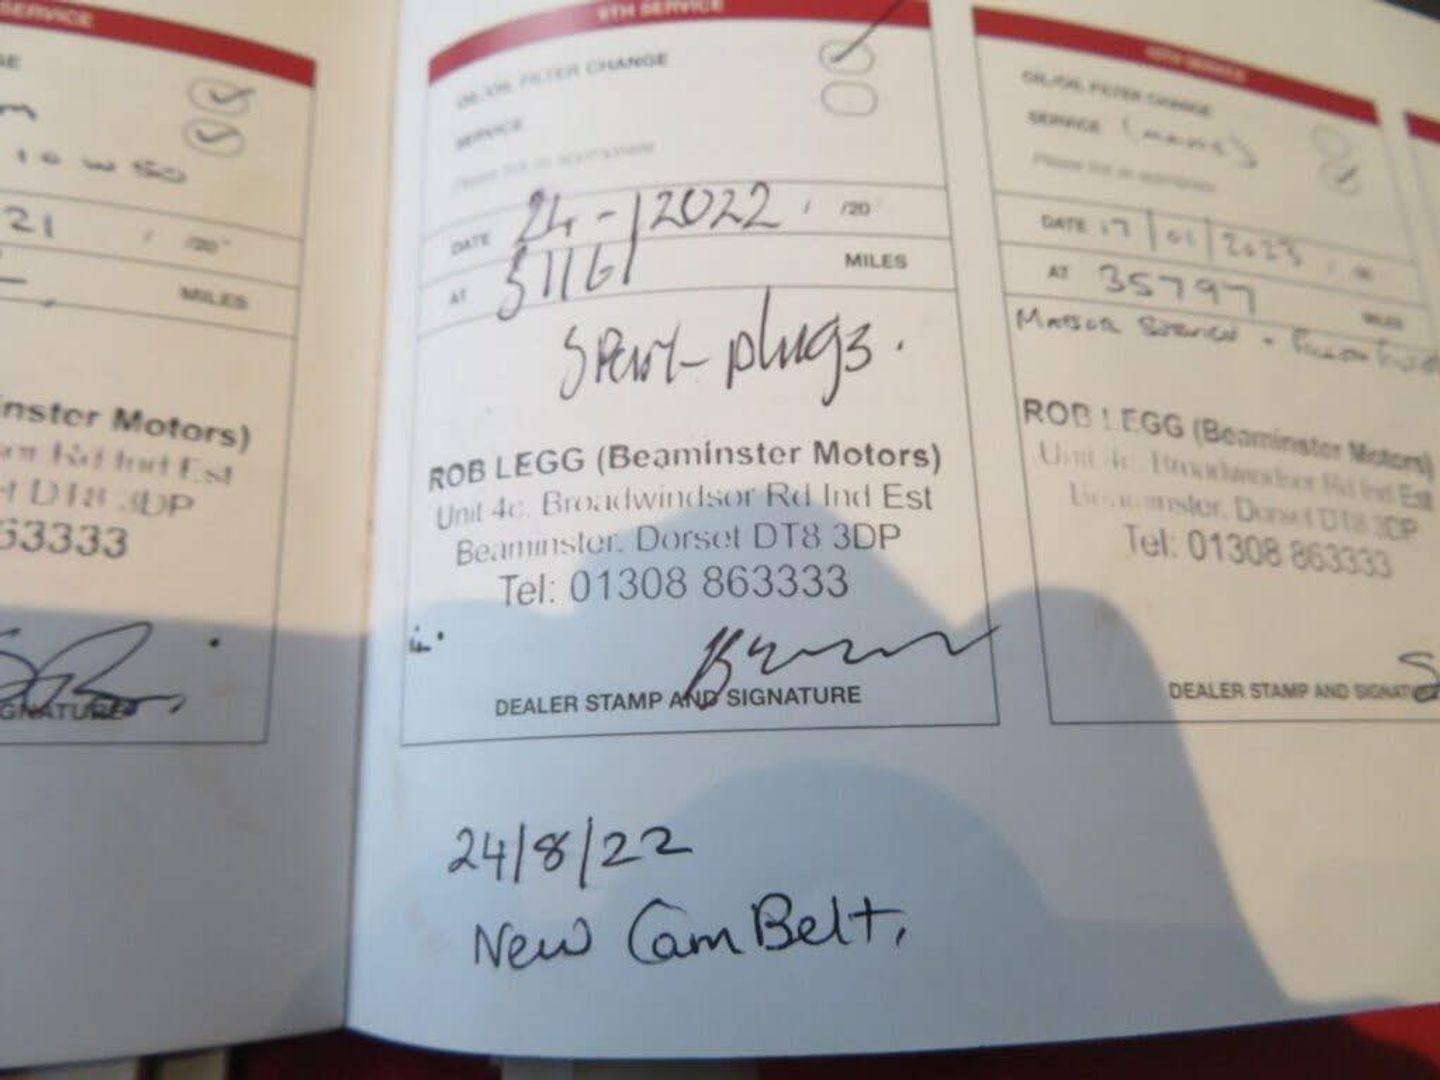 SERVICE
10 w 50
21 / /20
MILES
inster Motors)
Rd Ind Est
t DT8 3DP
63333
GNATURE
9TH SERVICE
OIL/OIL FILTER CHANGE
SERVICE
Please tick as appropriate
DATE 24-1 2022 / /20
AT 31161 MILES
Spark plugs.
ROB LEGG (Beaminster Motors)
Unit 4c. Broadwindsor Rd Ind Est
Beaminster. Dorset DT8 3DP
Tel: 01308 863333
DEALER STAMP AND SIGNATURE
24/8/22
New Cam Belt,
10TH SERVICE
OIL/OIL FILTER CHANGE
SERVICE
Please tick as appropriate
DATE 17/01/2023
AT 35797 MILES
ROB LEGG (Beaminster Motors)
Unit 4c. Broadwindsor Rd Ind Est
Beaminster, Dorset DT8 3DP
Tel: 01308 863333
DEALER STAMP AND SIGNAT